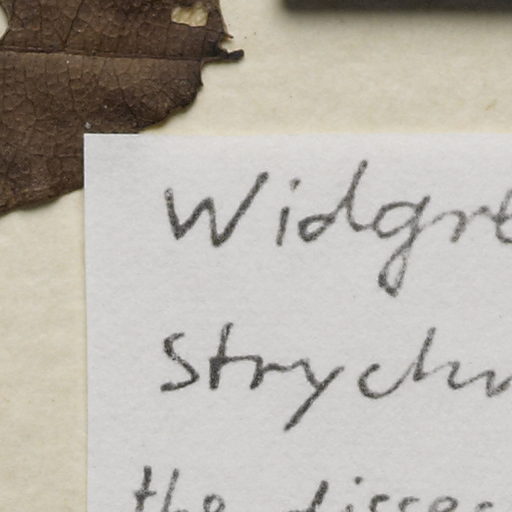 Widgre
Strychn
the dissec